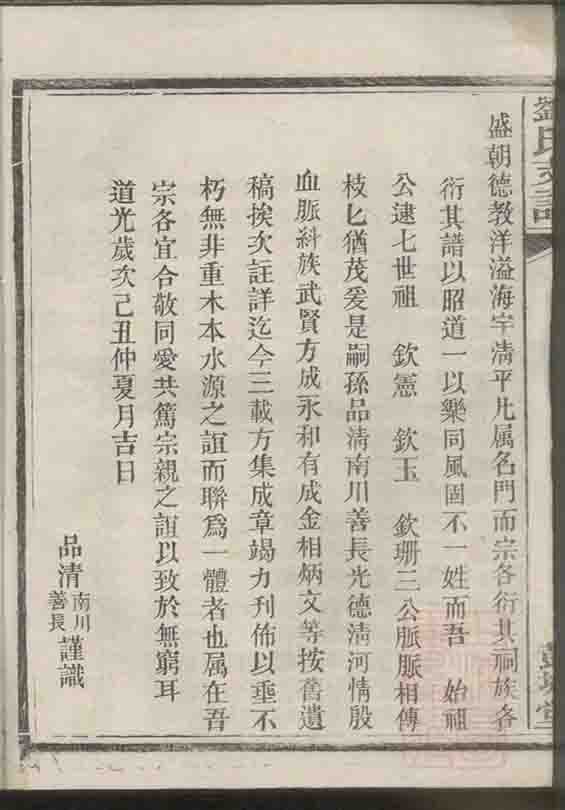 劉氏支譜
盛朝德教洋溢海宇清平凡属名門而宗各衍其祠族各
衍其譜以昭道一以樂同風固不一姓而吾　始祖
公逮七世祖　欽憲　欽玉　欽珊三公脈脈相傳
枝匕猶茂爰是嗣孫品清南川善長光德清河情殷
血脈紏族武賢方成永和有成金相炳文等按舊遺
稿挨次註詳迄今三載方集成章竭力刊佈以垂不
朽無非重木本水源之誼而聯爲一體者也属在吾
宗各宜合敬同愛共篤宗親之誼以致於無窮耳
道光歲次己丑仲夏月吉日
品清南川善長謹識